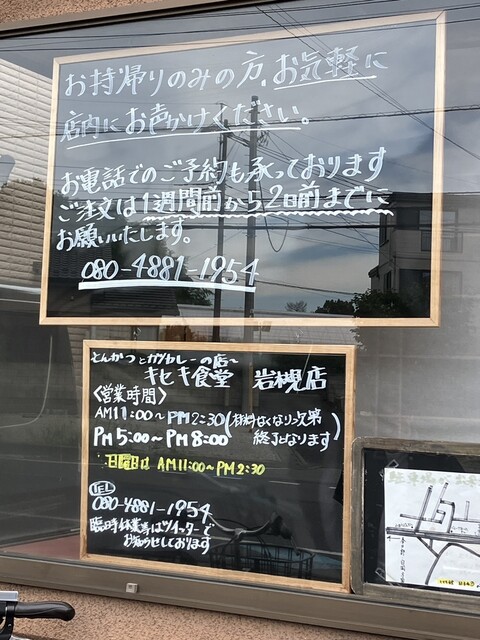 お持帰りのみの方、お気軽に
店内にお声かけください。
お電話でのご予約も承っております
ご注文は1週間前から2日前までに
お願いいたします。
080-4881-1954
とんかつとカツカレーの店〜
キセキ食堂 岩槻店
〈営業時間〉
AM11:00〜PM2:30(材料なくなり次第
終了となります)
PM5:00〜PM8:00
日曜日は AM11:00〜PM2:30
TEL
080-4881-1954
臨時休業等はツイッターで
お知らせしております